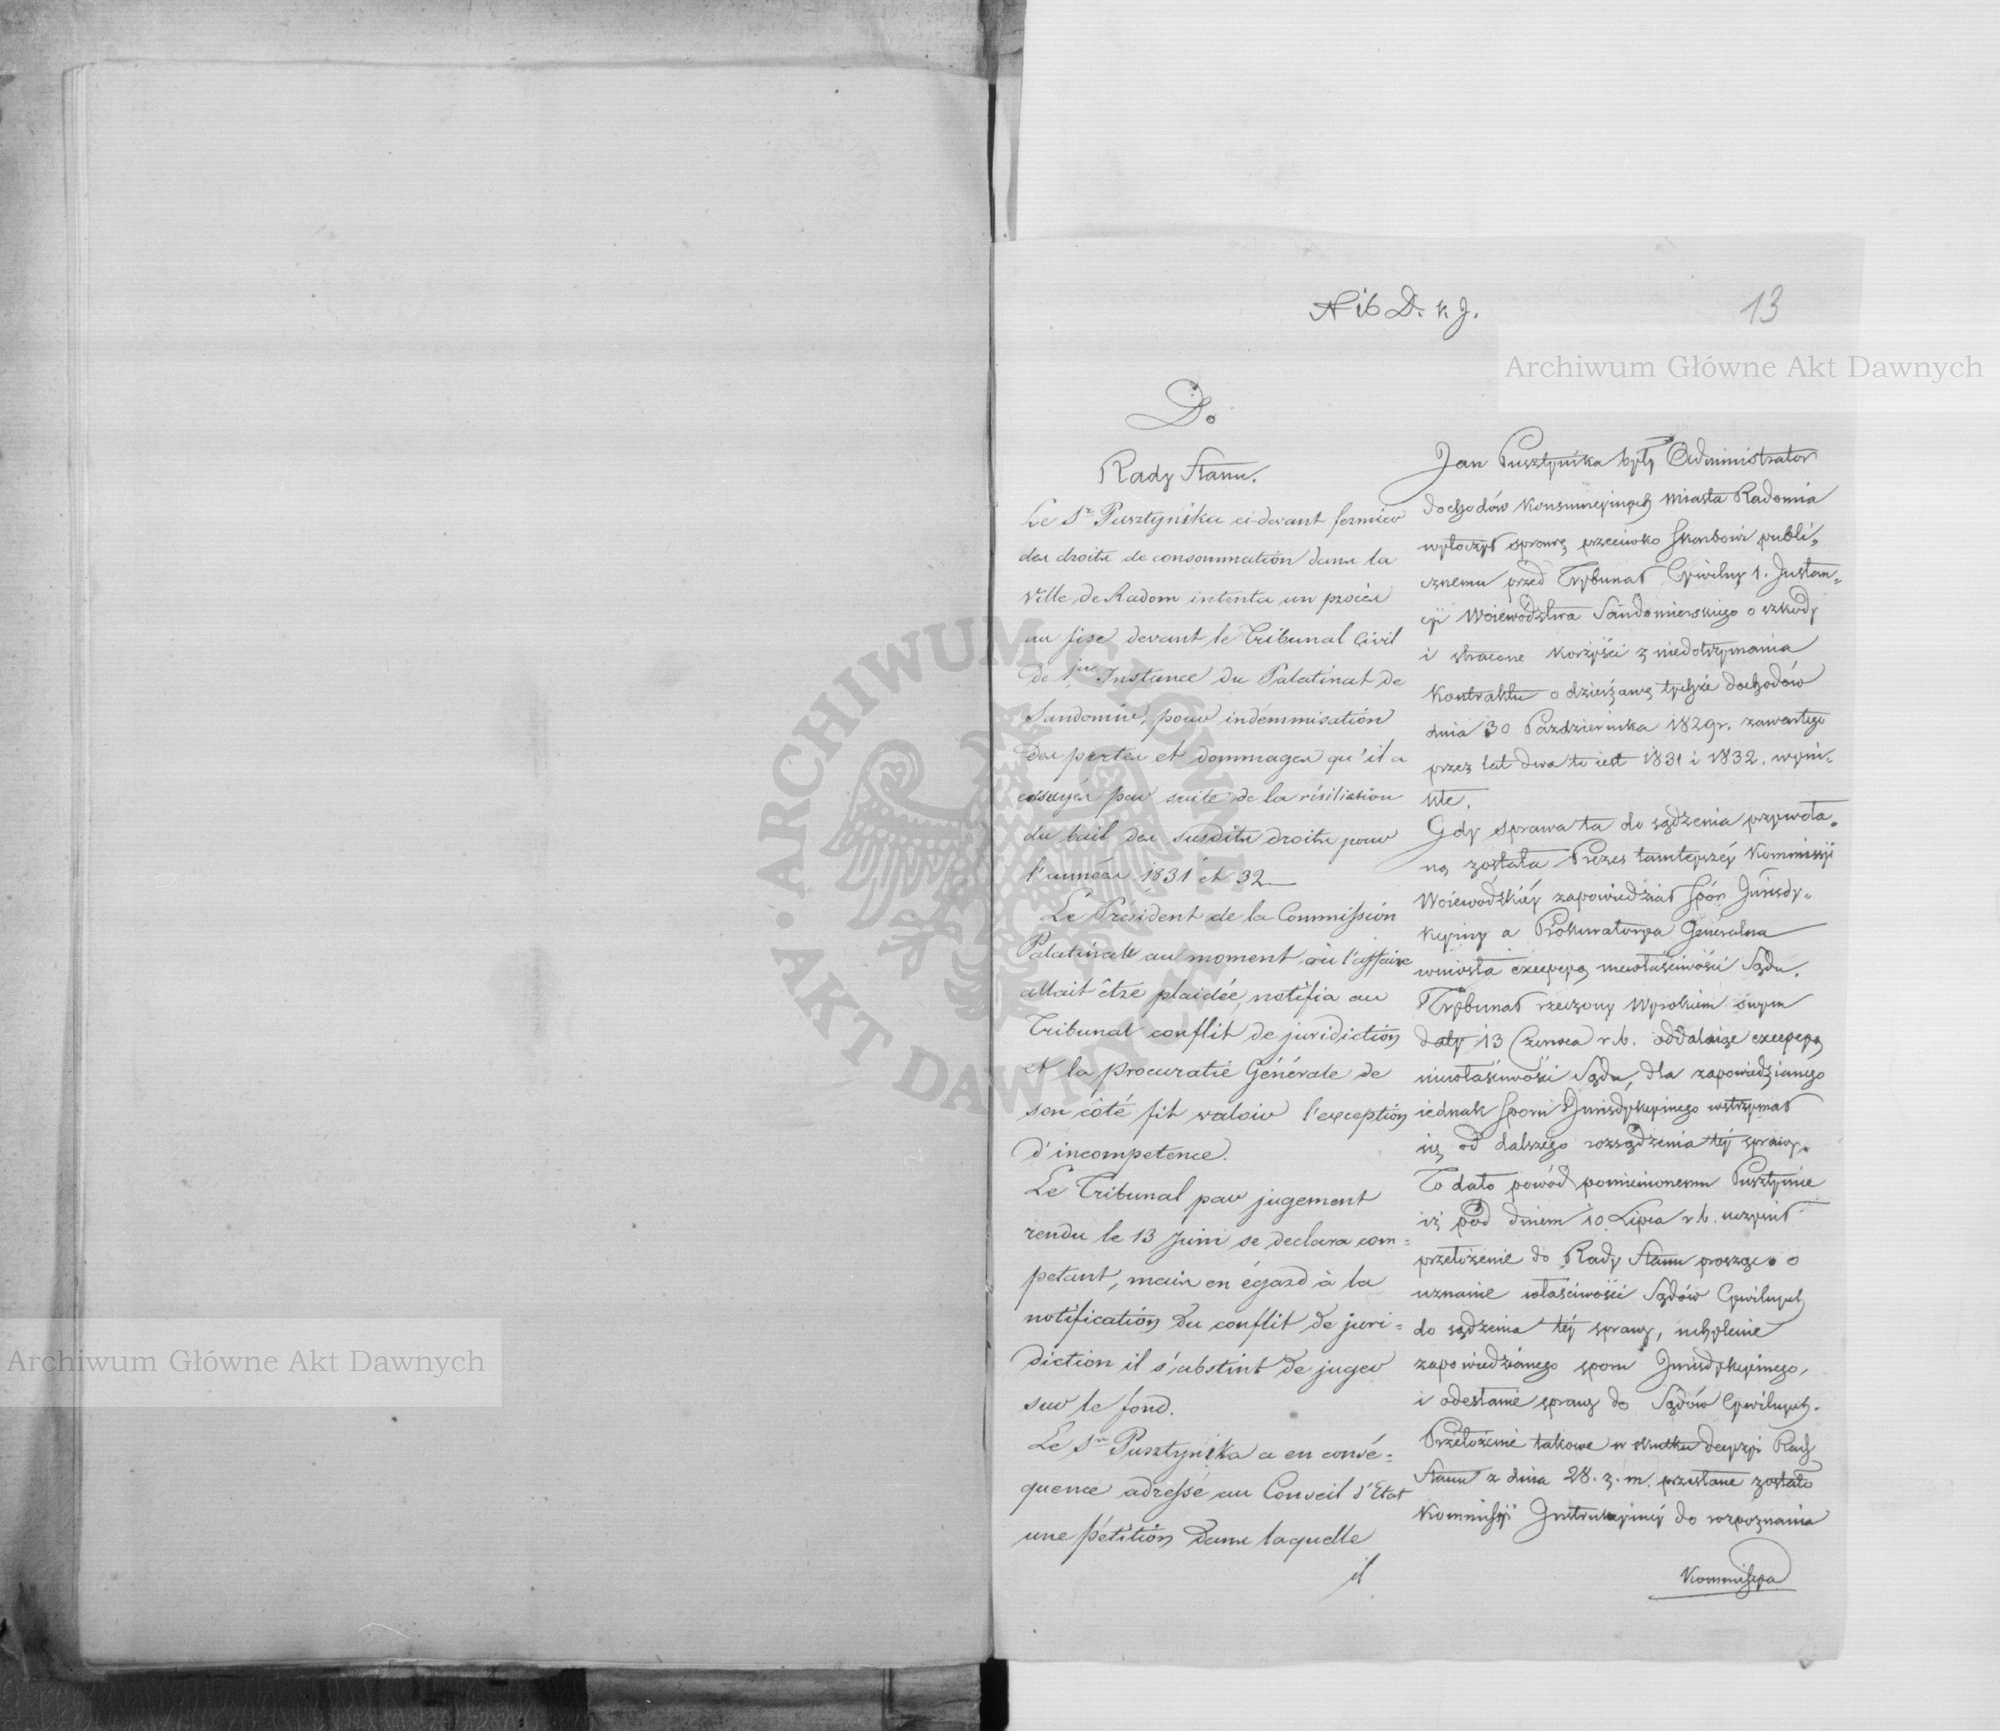 N 16 D. k J.
13
Do
Rady Stanu.
Le Sr Pusztynika ci-devant fermier
des droits de consommation dans la
ville de Radom intenta un procès
au fisc devant le Tribunal Civil
de 1re Instance du Palatinat de
Sandomir, pour indemnisation
des pertes et dommages qu'il a
essuyés par suite de la résiliation
du bail des susdits droits pour
l'années 1831 et 32
Le Président de la Commission
Palatinale au moment où l'affaire
allait être plaidée, notifia au
Tribunal conflit de juridiction
et la procuratie Générale de
son côté fit valoir l'exception
d'incompetence.
Le Tribunal par jugement
rendu le 13 Juin se declara com=
petant, mais en égard à la
notification du conflit de juri=
diction il s'abstint de juger
sur le fond.
Le Sr Pusztynika a en consé=
quence adressé au Conseil d'Etat
une pétition dans laquelle
il
Jan Pusztynika były Administrator
dochodów konsumcyinych miasta Radomia
wytoczył sprawę przeciwko Skarbowi publi„
cznemu przed Trybunał Cywilny 1. Instan„
cji Woiewództwa Sandomierskiego o szkody
i stracone korzyści z niedotrzymania
kontraktu o dzierżawę tychże dochodów
dnia 30 Października 1829 r. zawartego
przez lat dwa to iest 1831 i 1832. wyni„
kłe.
Gdy sprawa ta do sądzenia przywoła„
ną została Prezes tamteyszéy Kommissyi
Woiewódzkiéy zapowiedział spór Jurisdy„
kcyiny a Prokuratorya Generalna
wniosła excepcyą niewłaściwości Sądu.
Trybunał rzeczony Wyrokiem swym
daty 13 Czerwca r. b. oddalaiąc excepcyą
niewłaściwości Sądu, dla zapowiedzianego
iednak sporu Jurisdykcyinego wstrzymał
się od dalszego rozsądzenia téj sprawy.
To dało powód pomienionemu Pusztynice
iż pod dniem 10. Lipca r. b. uczynił
przełożenie do Rady Stanu prosząc o
uznanie właściwości Sądów Cywilnych
do sądzenia téj sprawy, uchylenie
zapowiedzianego sporu Jurisdykcyinego,
i odesłanie sprawy do Sądów Cywilnych.
Przełożenie takowe w skutku decyzyi Rady
Stanu z dnia 28. z. m. przesłane zostało
Kommissyi Instrukcyinéj do rozpoznania
Kommissya
Archiwum Główne Akt Dawnych
Archiwum Główne Akt Dawnych
ARCHIWUM GŁÓWNE AKT DAWNYCH